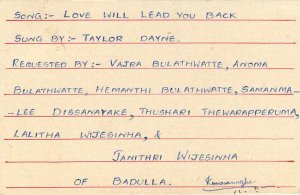 SONG:- LOVE WILL LEAD YOU BACK
SUNG BY:- TAYLOR DAYNE.
REQUESTED BY:- VAJRA BULATHWATTE, ANOMA
BULATHWATTE, HEMANTHI BULATHWATTE, SAMANMA-
-LEE DISSANAYAKE, THUSHARI THEWARAPPERUMA,
LALITHA WIJESINHA, &
JANITHRI WIJESINHA
OF BADULLA.